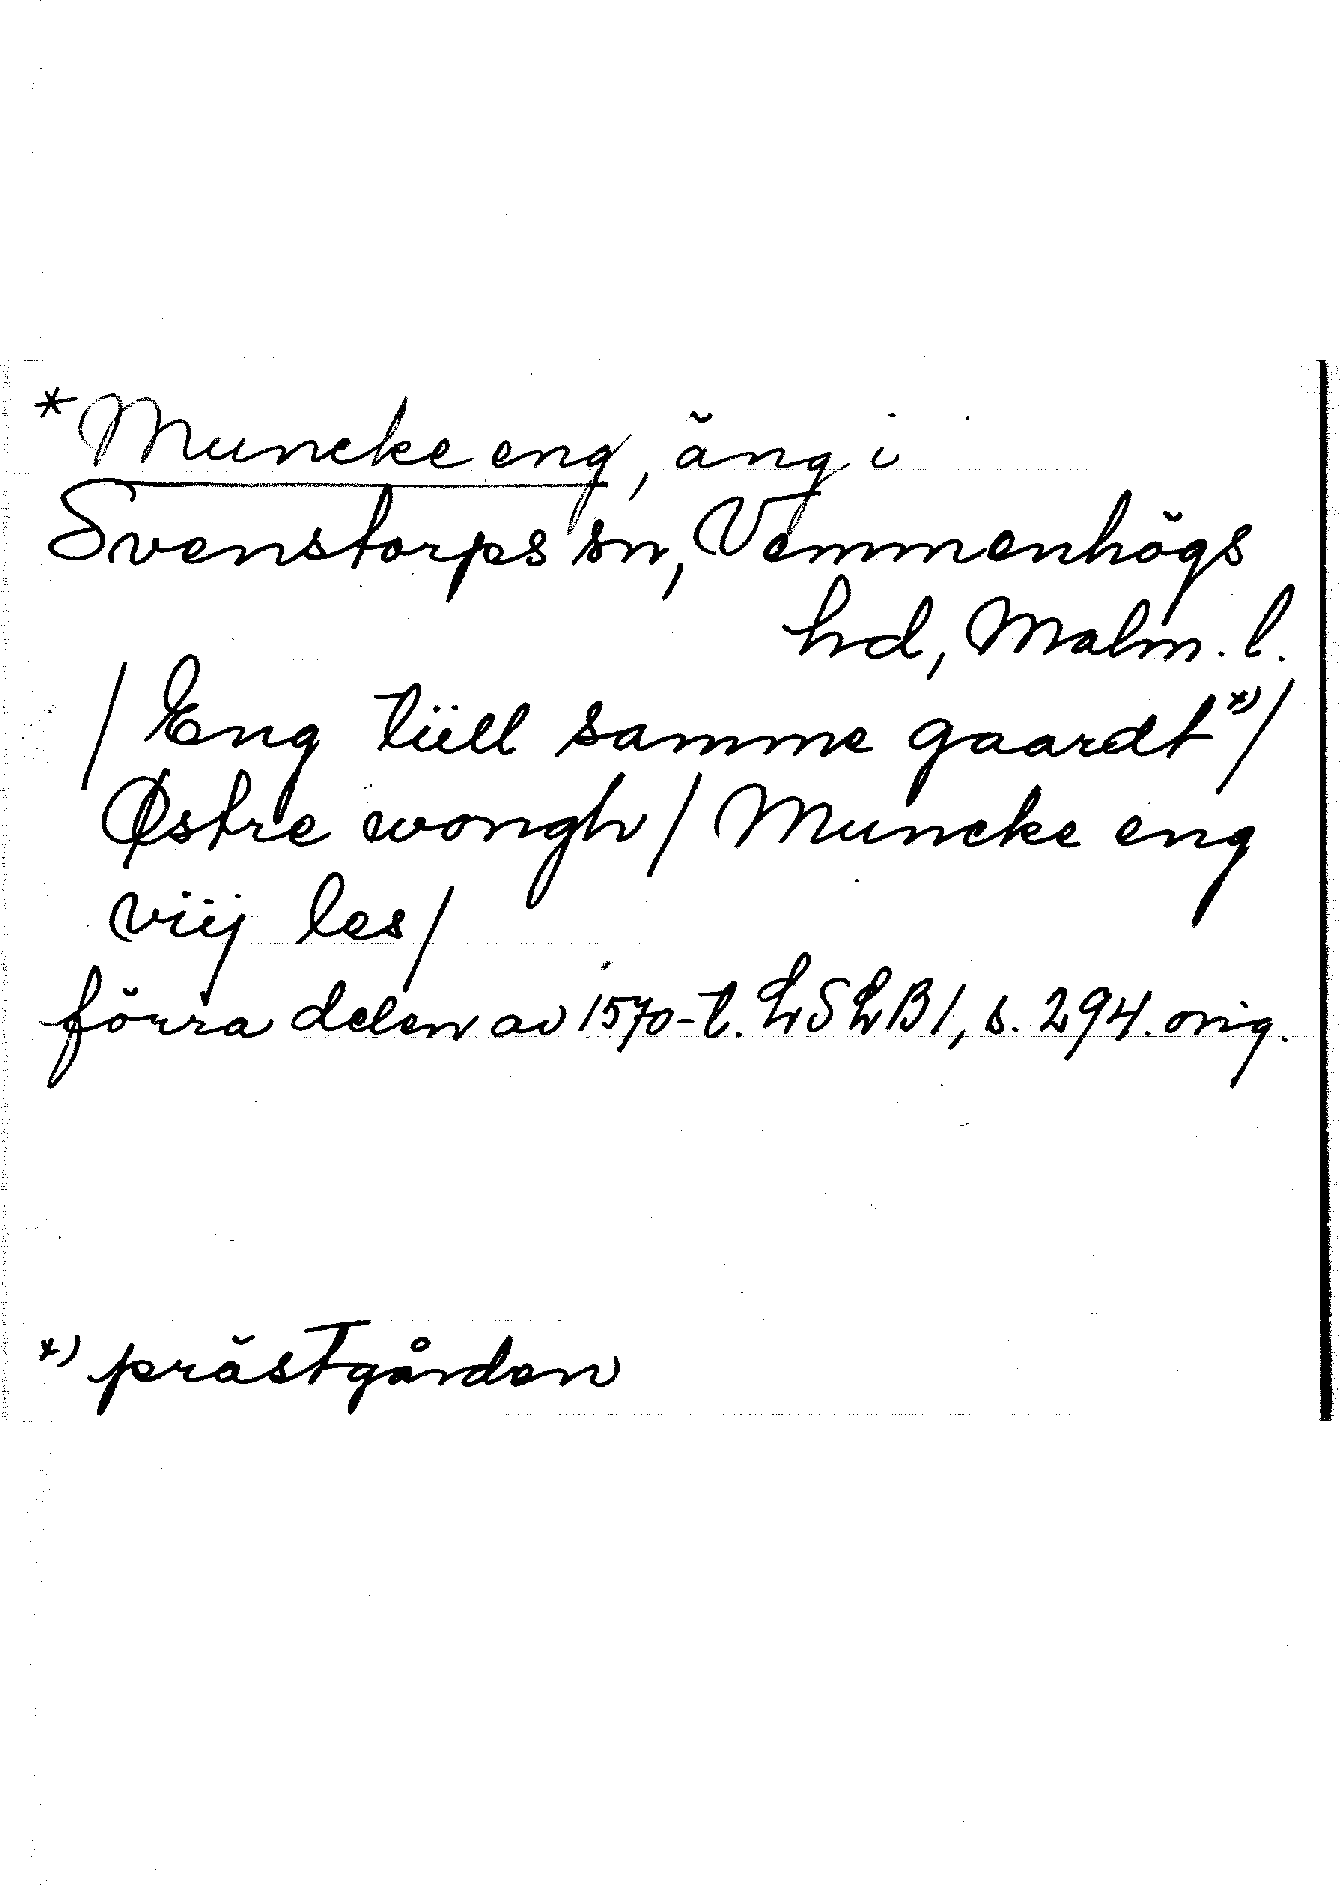 *Muncke eng, äng i
Svenstorps sn, Vemmenhögs
hd, Malm. l.
/ Eng tiill samme gaardt *)/
Østre wongh / Muncke eng
viij les /
förra delen av 1570-t. LSLB1, s. 294. orig.
*) prästgården